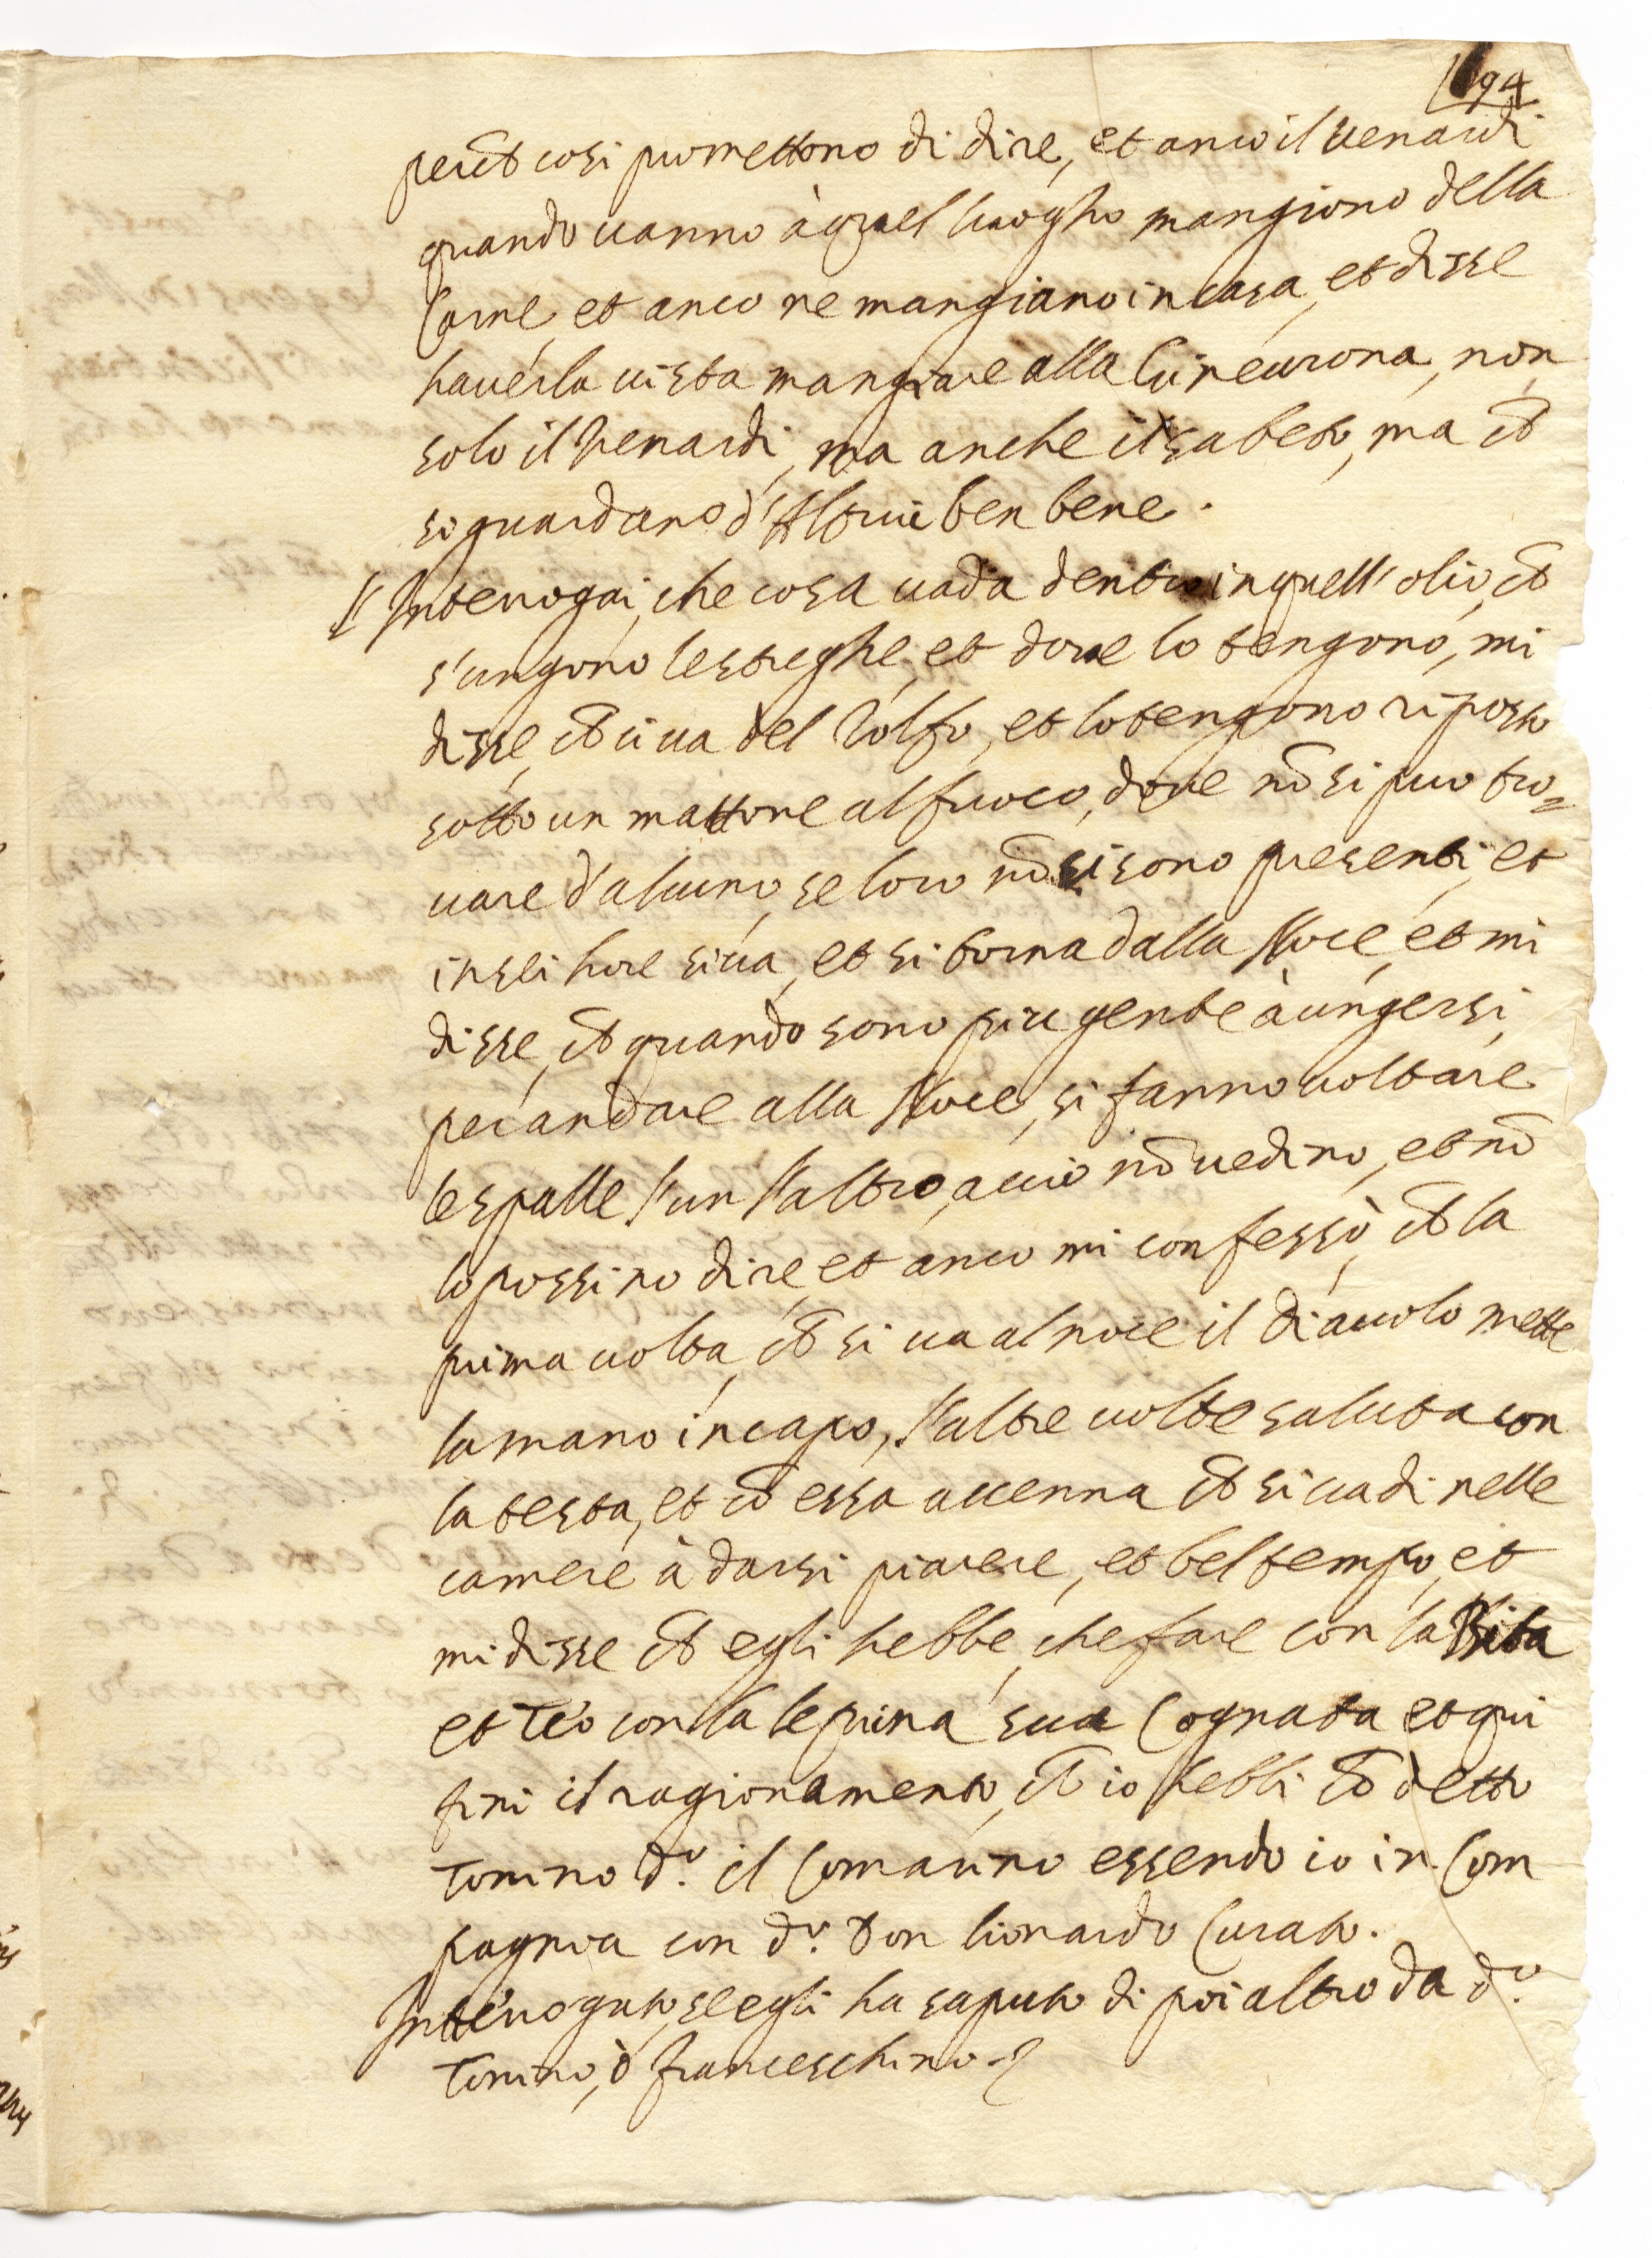 194
perch̃ cosi promettono di dire, et anco il uenardi
quando uanno à quel luogho mangiono della
Carne, et anco ne mangiano in casa, et disse
hauerla uista mangiare alla non
solo il Venardi, ma anche il sabeto, ma ch̃
si guardano d'Altrui ben bene.
Interrogai, che cosa uada dentro in quell'olio, ch̃
s'ungono le streghe, et doue lo tengono, mi
disse, ch̃ ci ua del Solfo, et lo tengono riposto
sotto un mattone al fuoco, doue nõ si puo tro=
uare d'alcuno, se loro nõ si sono presenti, et
in sei hore si ua, et si torna dalla Noce, et mi
disse, ch̃ quando sono piu gente à ungersi,
per andare alla Noce, si fanno uoltare
le spalle l'un l'altro, accio nõ uedino, et nõ
lo possino dire, et anco mi confessò, ch̃ la
prima uolta, ch̃ si ua al noce il diauolo mette
la mano in capo, l'altre uolte saluta con
la testa, et cõ essa accenna ch̃ si uadi nelle
camere à darsi piacere, et bel tempo, et
mi disse ch̃ egli hebbe, che fare con la Bita
et Teo con la lesua Cognata et qui
fini il ragionamento, ch̃ io hebbi cõ detto
Tonino d.º il Comanno essendo io in Com
pagnia con d.º Don lionardo Curato.
Interrogato, se egli ha saputo di poi altro da d.º
Tonino, ò franceschino